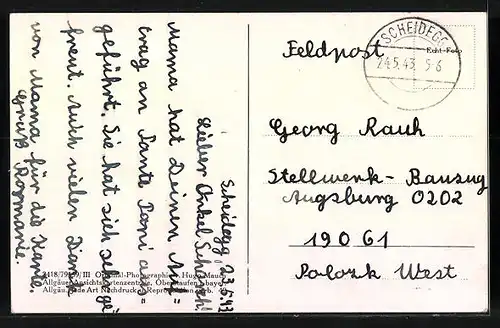 Scheidegg, 23.5.43
Lieber Onkel Schorschl!
Mama hat Deinen Auf=
trag an Tante Poni aus=
geführt. Sie hat sich sehr ge
freut. Auch vielen Dank
von Mama für die Karte.
Gruß Rosmarie.
Feldpost
SCHEIDEGG
24.5.43 5-6
Echt-Foto
Georg Rauh
Stellwerk-Bauzug
Augsburg 0202
19061
Polozk West
Original-Photographie Hugo
Allgäuer Ansichtskartenzentrale, Oberstaufen
Allgäu. Jede Art Nachdruck Reproduktion verb.